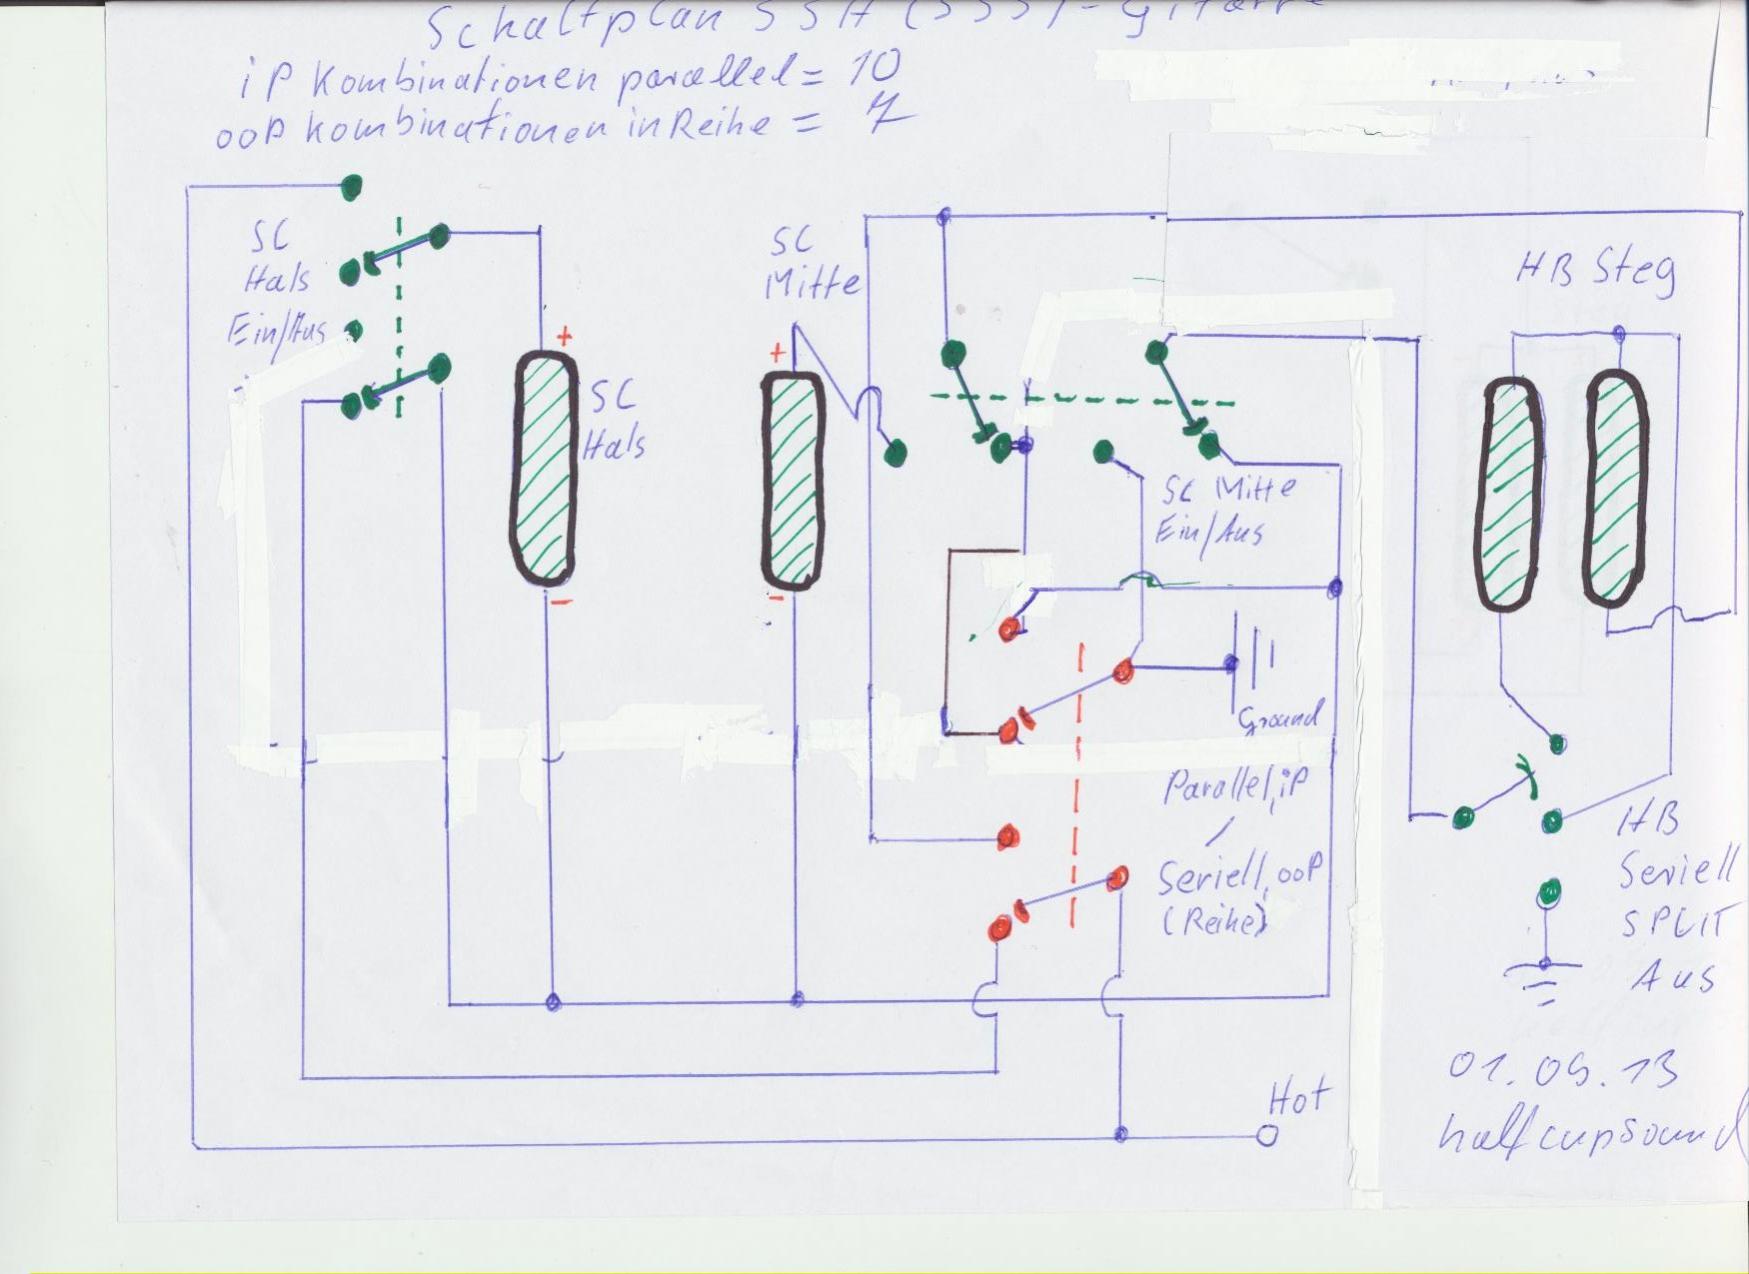 Schaltplan SSH (SSS)-Gitarre
iP Kombinationen parallel = 10
ooP Kombinationen in Reihe = 7
SC
Hals
Ein/Aus
+
SC
Hals
-
SC
Mitte
+
-
SC Mitte
Ein/Aus
HB Steg
Ground
Parallel, iP
/
Seriell, ooP
(Reihe)
HB
Seriell
SPLIT
Aus
Hot
01.09.13
halfcupsound